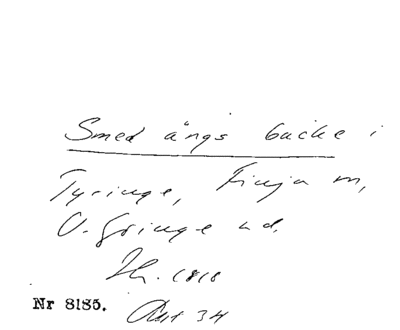 Smedängs backe i
Tyringe, Finja sn,
V. Göinge hd,
Jh. 1818
Nr 8185. Akt 34